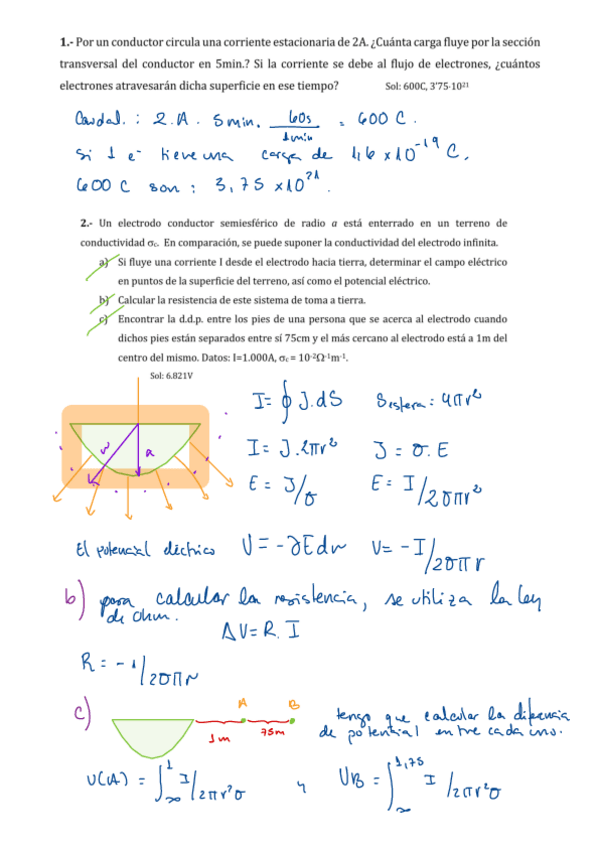 1.- Por un conductor circula una corriente estacionaria de 2A. ¿Cuánta carga fluye por la sección
transversal del conductor en 5min.? Si la corriente se debe al flujo de electrones, ¿cuántos
electrones atravesarán dicha superficie en ese tiempo? Sol: 600C, 3'75·10²¹
Caudal. : 2.A . 5 min. 60s/1min = 600 C.
Si 1 e⁻ tiene una carga de 1,6 x 10⁻¹⁹ C,
600 C son : 3,75 x10²¹
2.- Un electrodo conductor semiesférico de radio a está enterrado en un terreno de
conductividad σc. En comparación, se puede suponer la conductividad del electrodo infinita.
a) Si fluye una corriente I desde el electrodo hacia tierra, determinar el campo eléctrico
en puntos de la superficie del terreno, así como el potencial eléctrico.
b) Calcular la resistencia de este sistema de toma a tierra.
c) Encontrar la d.d.p. entre los pies de una persona que se acerca al electrodo cuando
dichos pies están separados entre sí 75cm y el más cercano al electrodo está a 1m del
centro del mismo. Datos: I=1.000A, σc = 10⁻²Ω⁻¹m⁻¹.
Sol: 6.821V
I= ∮ J.dS Sesfera: 4πr²
I= J.2πr² J = σ.E
r a
E = J/σ E = I/2σπr²
El potencial eléctrico V = -∂Edr V= -I/2σπr
b) para calcular la resistencia, se utiliza la ley
de Ohm.
ΔV= R. I
R = -1/2σπr
c) A B
1m 75m
tengo que calcular la diferencia
de potencial entre cada uno.
U(A) = ∫∞¹ I/2πr²σ y UB = ∫∞¹,⁷⁵ I/2πr²σ